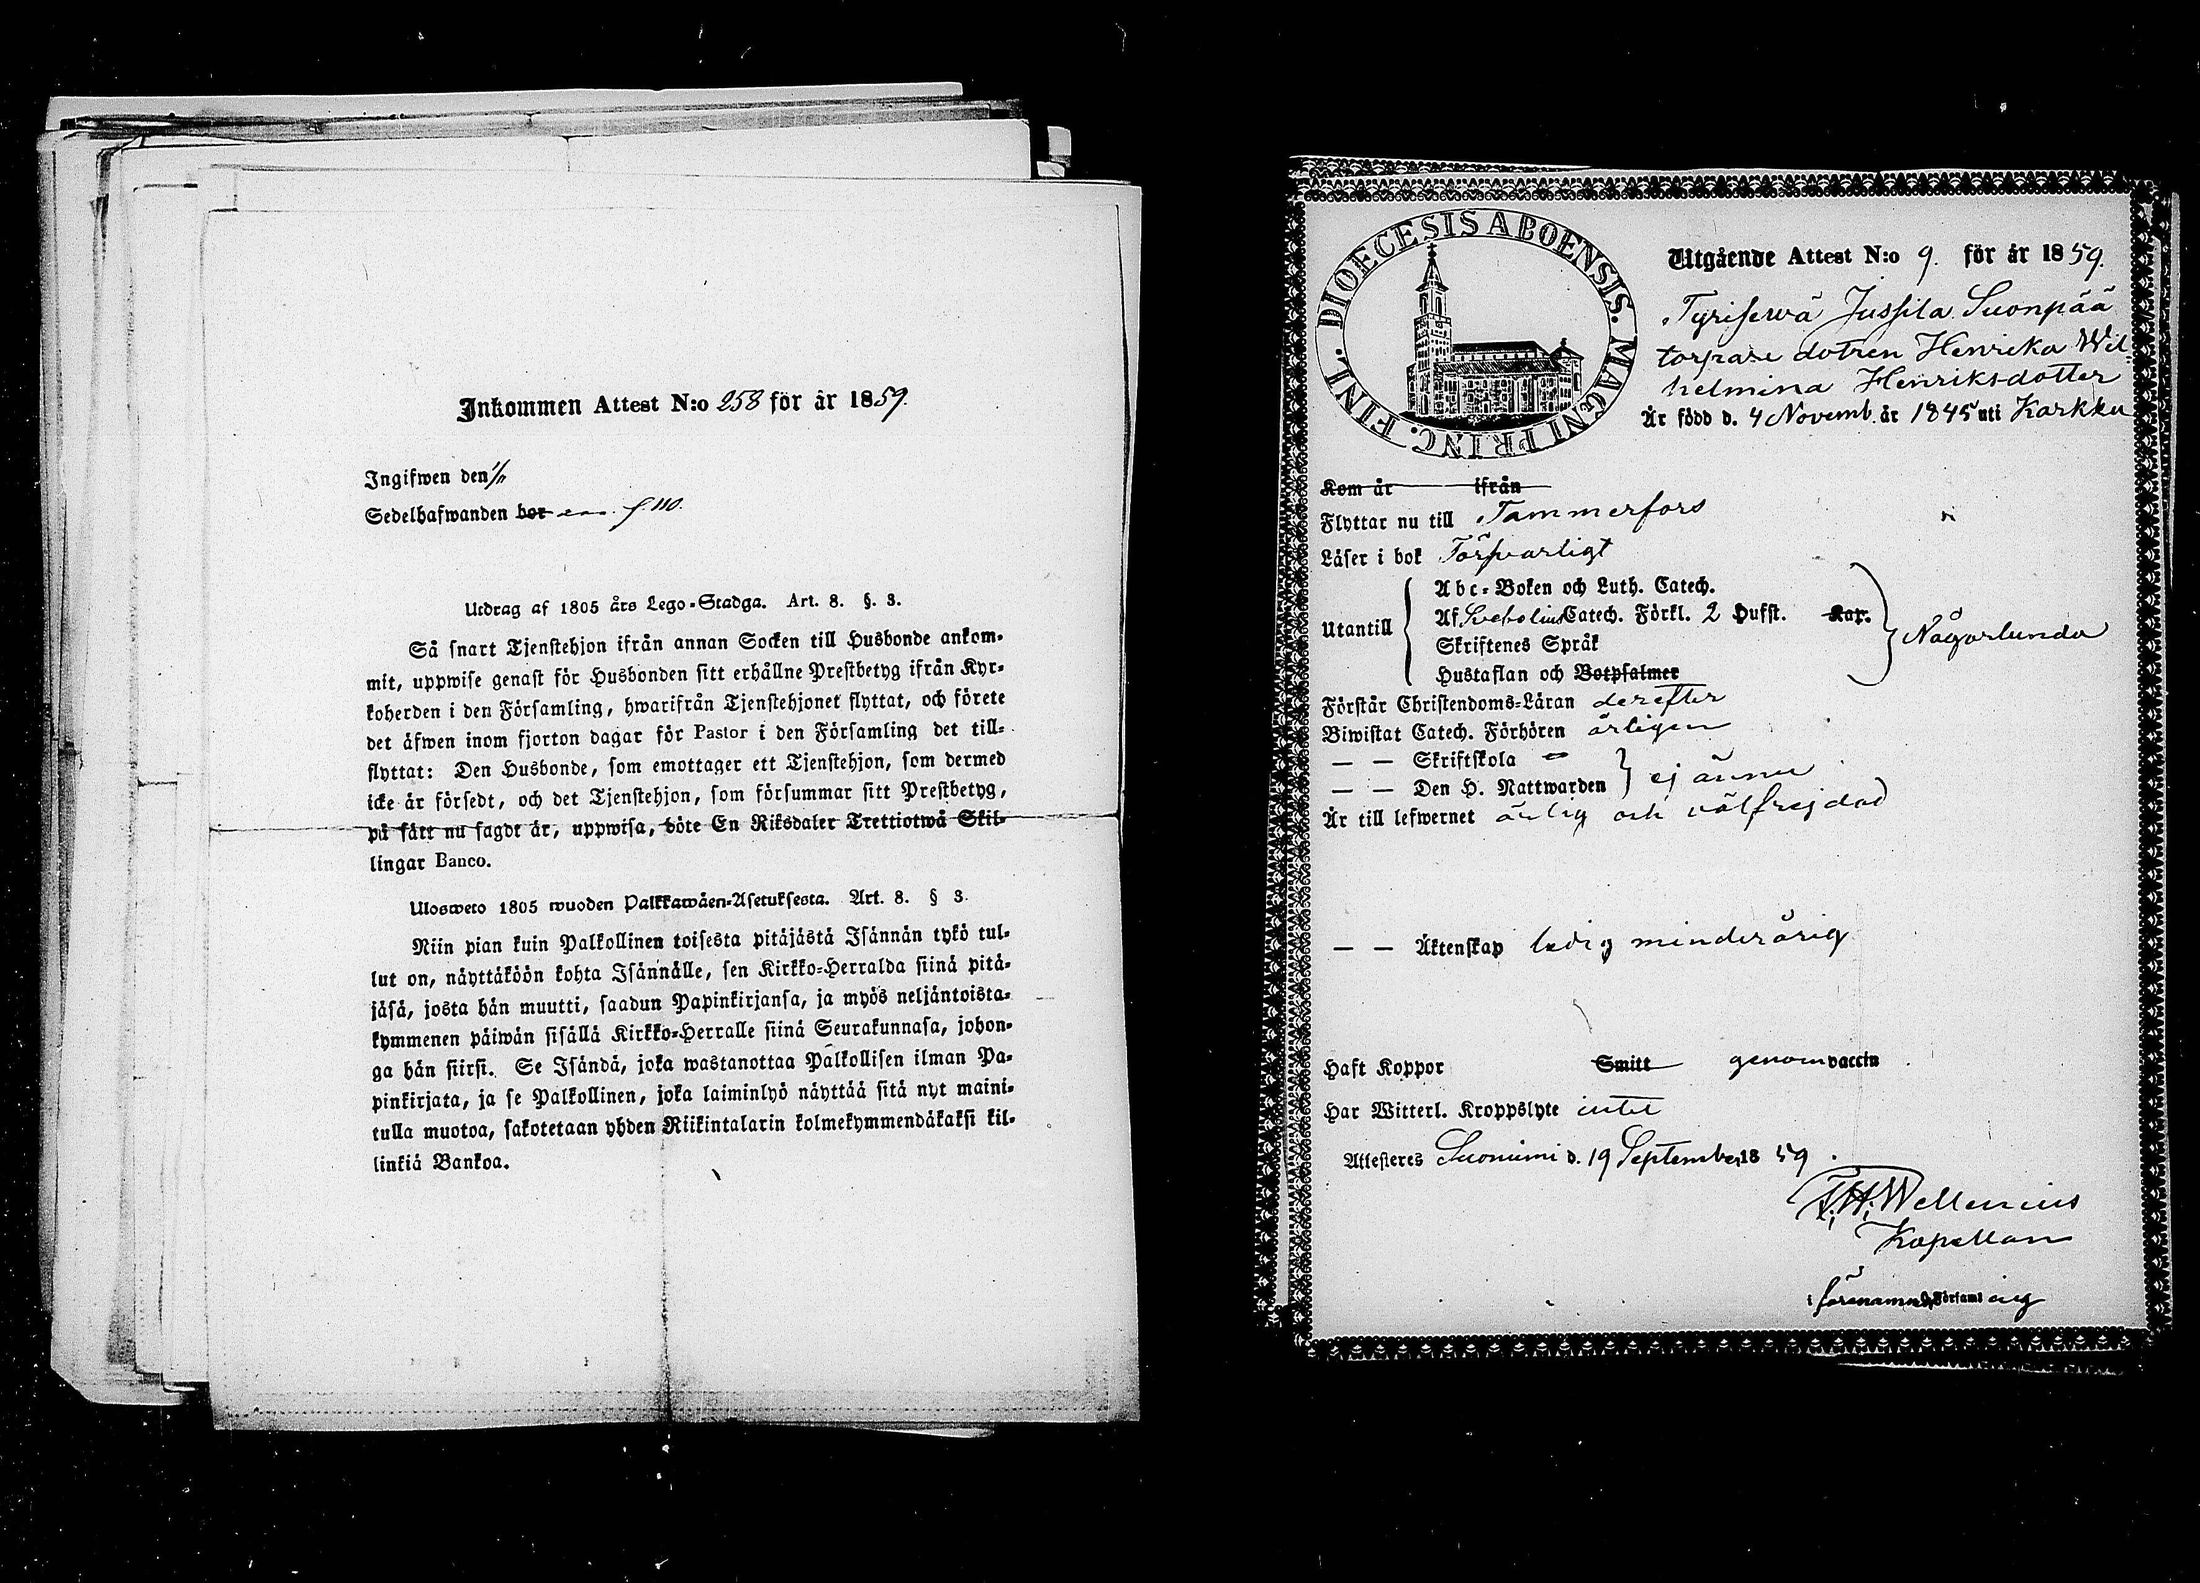 Inkommen Attest N:o 258 för år 1859.
Ingifwen den 1/11
Sedelhafwanden bor f. 110.
Utdrag af 1805 års Lego-Stadga. Art. 8. §. 3.
Så snart Tjenstehjon ifrån annan Socken till Husbonde ankom-
mit, uppwise genast för Husbonden sitt erhållne Prestbetyg ifrån Kyr-
koherden i den Församling, hwarifrån Tjenstehjonet flyttat, och förete
det äfwen inom fjorton dagar för Pastor i den Församling det till-
flyttat: Den Husbonde, som emottager ett Tjenstehjon, som dermed
icke är försedt, och det Tjenstehjon, som försummar sitt Prestbetyg,
på sätt nu sagdt är, uppwisa, böte En Riksdaler Trettiotwå Skil-
lingar Banco.
Ulosweto 1805 wuoden Palkkawäen-Asetuksesta. Art. 8. § 3.
Niin pian kuin Palkollinen toisesta pitäjästä Isännän tykö tul-
lut on, näyttäköön kohta Isännälle, sen Kirkko-Herralda siinä pitä-
jäsä, josta hän muutti, saadun Papinkirjansa, ja myös neljäntoista-
kymmenen päiwän sisällä Kirkko-Herralle siinä Seurakunnasa, johon-
ga hän siirsi. Se Isändä, joka wastanottaa Palkollisen ilman Pa-
pinkirjata, ja se Palkollinen, joka laiminlyö näyttää sitä nyt maini-
tulla muotoa, sakotetaan yhden Riikintalarin kolmekymmendäkaksi kil-
linkiä Bankoa.
DIOECESIS ABOENSIS. MAGNI PRINC. FINL.
Utgående Attest N:o 9. för år 1859.
Tyrisewä Jussila Suonpää
torpare dotren Henrika Wil-
helmina Henriksdotter
Är född d. 4 Novemb. år 1845 uti Karkku
Kom år ifrån
Flyttar nu till Tammerfors
Läser i bok Försvarligt
Abc-Boken och Luth. Catech.
Af Svebelius Catech. Förkl. 2 Hufst. Kap.
Utantill Någorlunda
Skriftenes Språk
Hustaflan och Botpsalmer
Förstår Christendoms-Läran derefter
Biwistat Catech. Förhören årligen
— — Skriftskola
— — Den H. Nattwarden ej ännu
Är till lefwernet ärlig och välfrejdad
— — Äktenskap ledig minderårig
Haft Koppor Smitt genom vaccin
Har Witterl. Kroppslyte intet
Attesteres Suoniemi d. 19 September 1859.
F. H. Wellenius
Kapellan
i förenamnda Församling